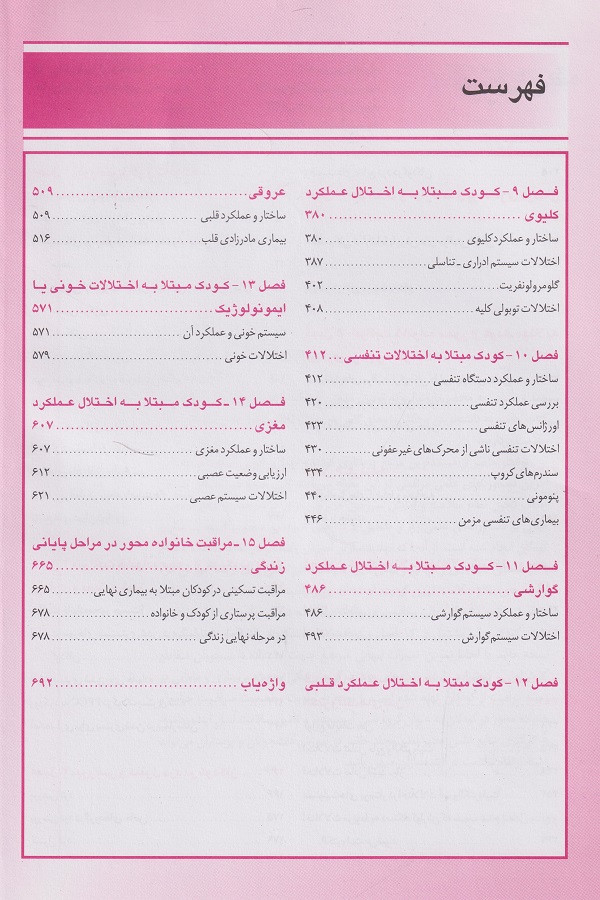 فهرست
فصل ۹ - کودک مبتلا به اختلال عملکرد
کلیوی ........ ۳۸۰
ساختار و عملکرد کلیوی ........ ۳۸۰
اختلالات سیستم ادراری - تناسلی ........ ۳۸۷
گلومرولونفریت ........ ۴۰۲
اختلالات توبولی کلیه ........ ۴۰۸
فصل ۱۰ - کودک مبتلا به اختلالات تنفسی ... ۴۱۲
ساختار و عملکرد دستگاه تنفسی ........ ۴۱۲
بررسی عملکرد تنفسی ........ ۴۲۰
اورژانس‌های تنفسی ........ ۴۲۳
اختلالات تنفسی ناشی از محرک‌های غیرعفونی ........ ۴۳۰
سندرم‌های کروپ ........ ۴۳۴
پنومونی ........ ۴۴۰
بیماری‌های تنفسی مزمن ........ ۴۴۶
فصل ۱۱ - کودک مبتلا به اختلال عملکرد
گوارشی ........ ۴۸۶
ساختار و عملکرد سیستم گوارشی ........ ۴۸۶
اختلالات سیستم گوارش ........ ۴۹۳
فصل ۱۲ - کودک مبتلا به اختلال عملکرد قلبی
عروقی ........ ۵۰۹
ساختار و عملکرد قلبی ........ ۵۰۹
بیماری مادرزادی قلب ........ ۵۱۶
فصل ۱۳ - کودک مبتلا به اختلالات خونی یا
ایمونولوژیک ........ ۵۷۱
سیستم خونی و عملکرد آن ........ ۵۷۱
اختلالات خونی ........ ۵۷۹
فصل ۱۴ - کودک مبتلا به اختلال عملکرد
مغزی ........ ۶۰۷
ساختار و عملکرد مغزی ........ ۶۰۷
ارزیابی وضعیت عصبی ........ ۶۱۲
اختلالات سیستم عصبی ........ ۶۲۱
فصل ۱۵ - مراقبت خانواده محور در مراحل پایانی
زندگی ........ ۶۶۵
مراقبت تسکینی در کودکان مبتلا به بیماری نهایی ........ ۶۶۵
مراقبت پرستاری از کودک و خانواده ........ ۶۷۸
در مرحله نهایی زندگی ........ ۶۷۸
واژه‌یاب ........ ۶۹۲